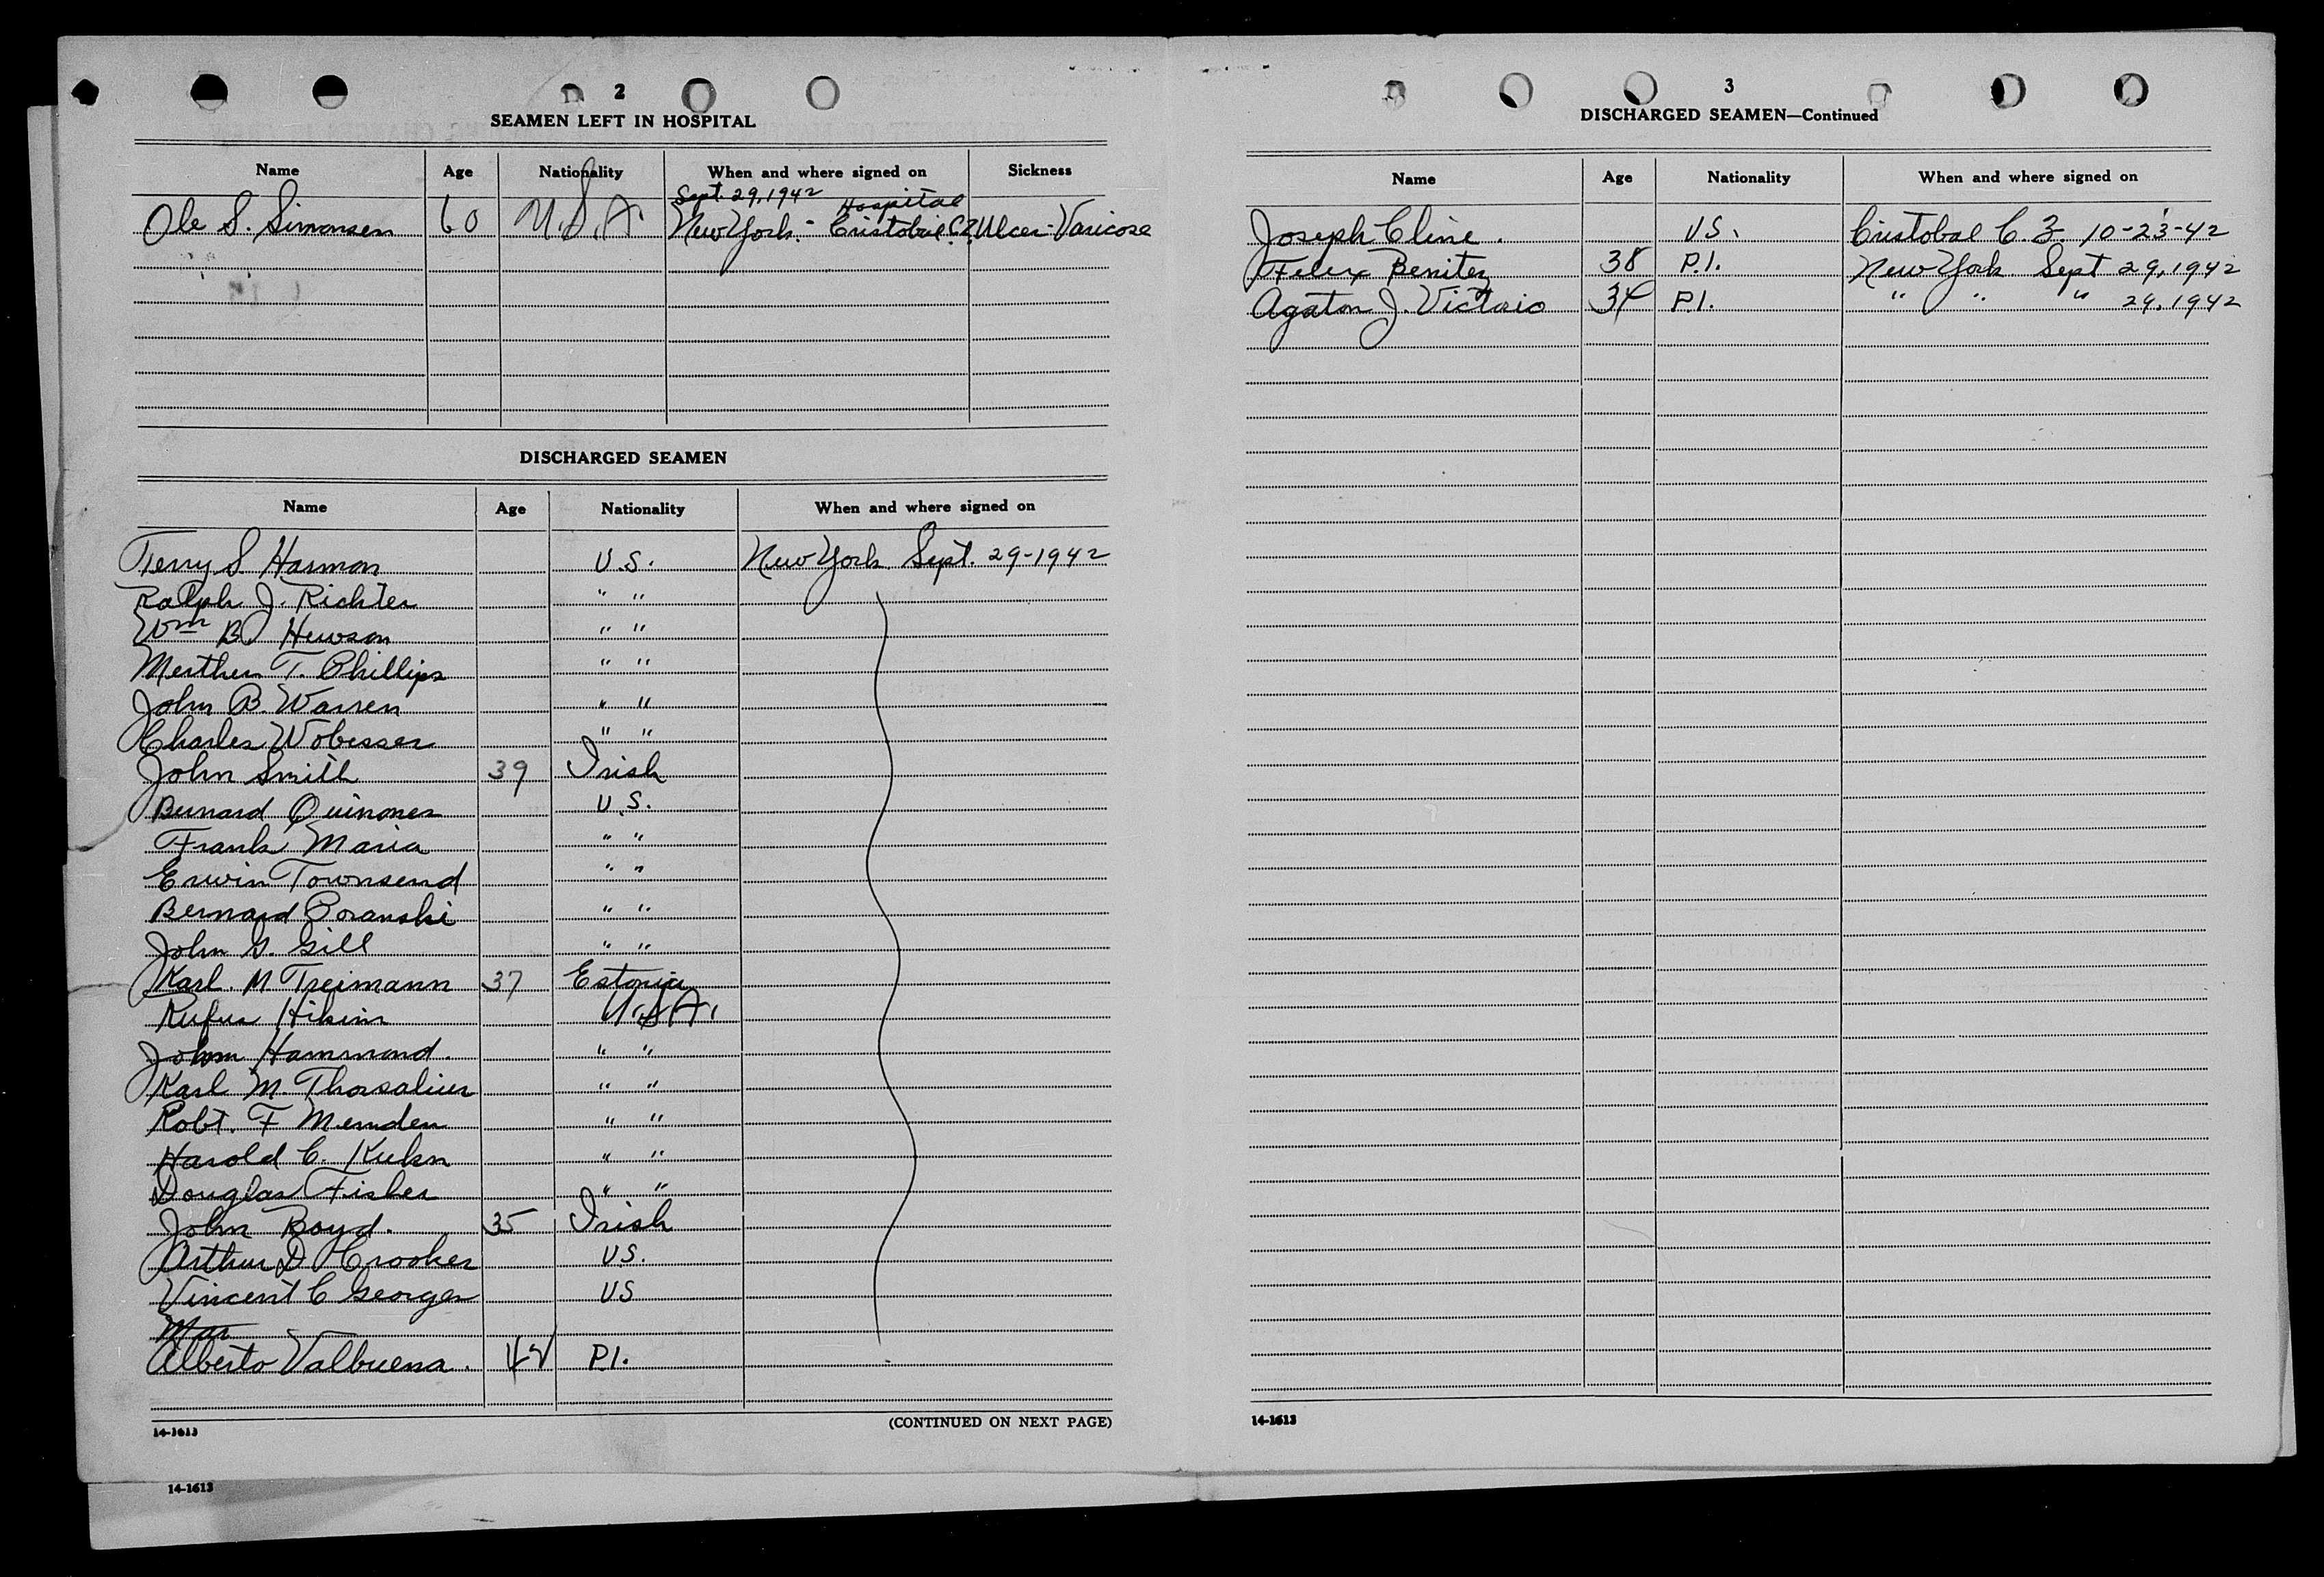 2
SEAMEN LEFT IN HOSPITAL
Name Age Nationality When and where signed on Sickness
Sept. 29, 1942 Hospital
Ole S. Simonsen 60 U.S.A. New York - Cristobal C.Z. Ulcer-Varicose
DISCHARGED SEAMEN
Name Age Nationality When and where signed on
Terry S. Harmon U.S. New York Sept. 29-1942
Ralph J. Richter " "
Wm B. Hewson " "
T. Phillips " "
John B. Warren " "
Charles Wobesser " "
John Smith 39 Irish
Bernard Quinones U.S.
Frank Maria " "
Erwin Townsend " "
Bernard Poranski " "
John G. Gill " "
Karl M. Treimann 37 Estonia
Rufus U.S.A.
John Hammond. " "
Karl M. " "
Robt. F " "
Harold C. Kuhn " "
Douglas Fisher " "
John Boyd. 35 Irish
Arthur D Crooker U.S.
Vincent C Georges US
Mar
Alberto Valbuena. P.I.
(CONTINUED ON NEXT PAGE)
14-1613
14-1613
3
DISCHARGED SEAMEN—Continued
Name Age Nationality When and where signed on
Joseph Cline. U.S. Cristobal C.Z. 10-23-42
Felix Benitez 38 P.I. New York Sept 29, 1942
Agaton J. Victorio 34 P.I. " " " 29, 1942
14-1613